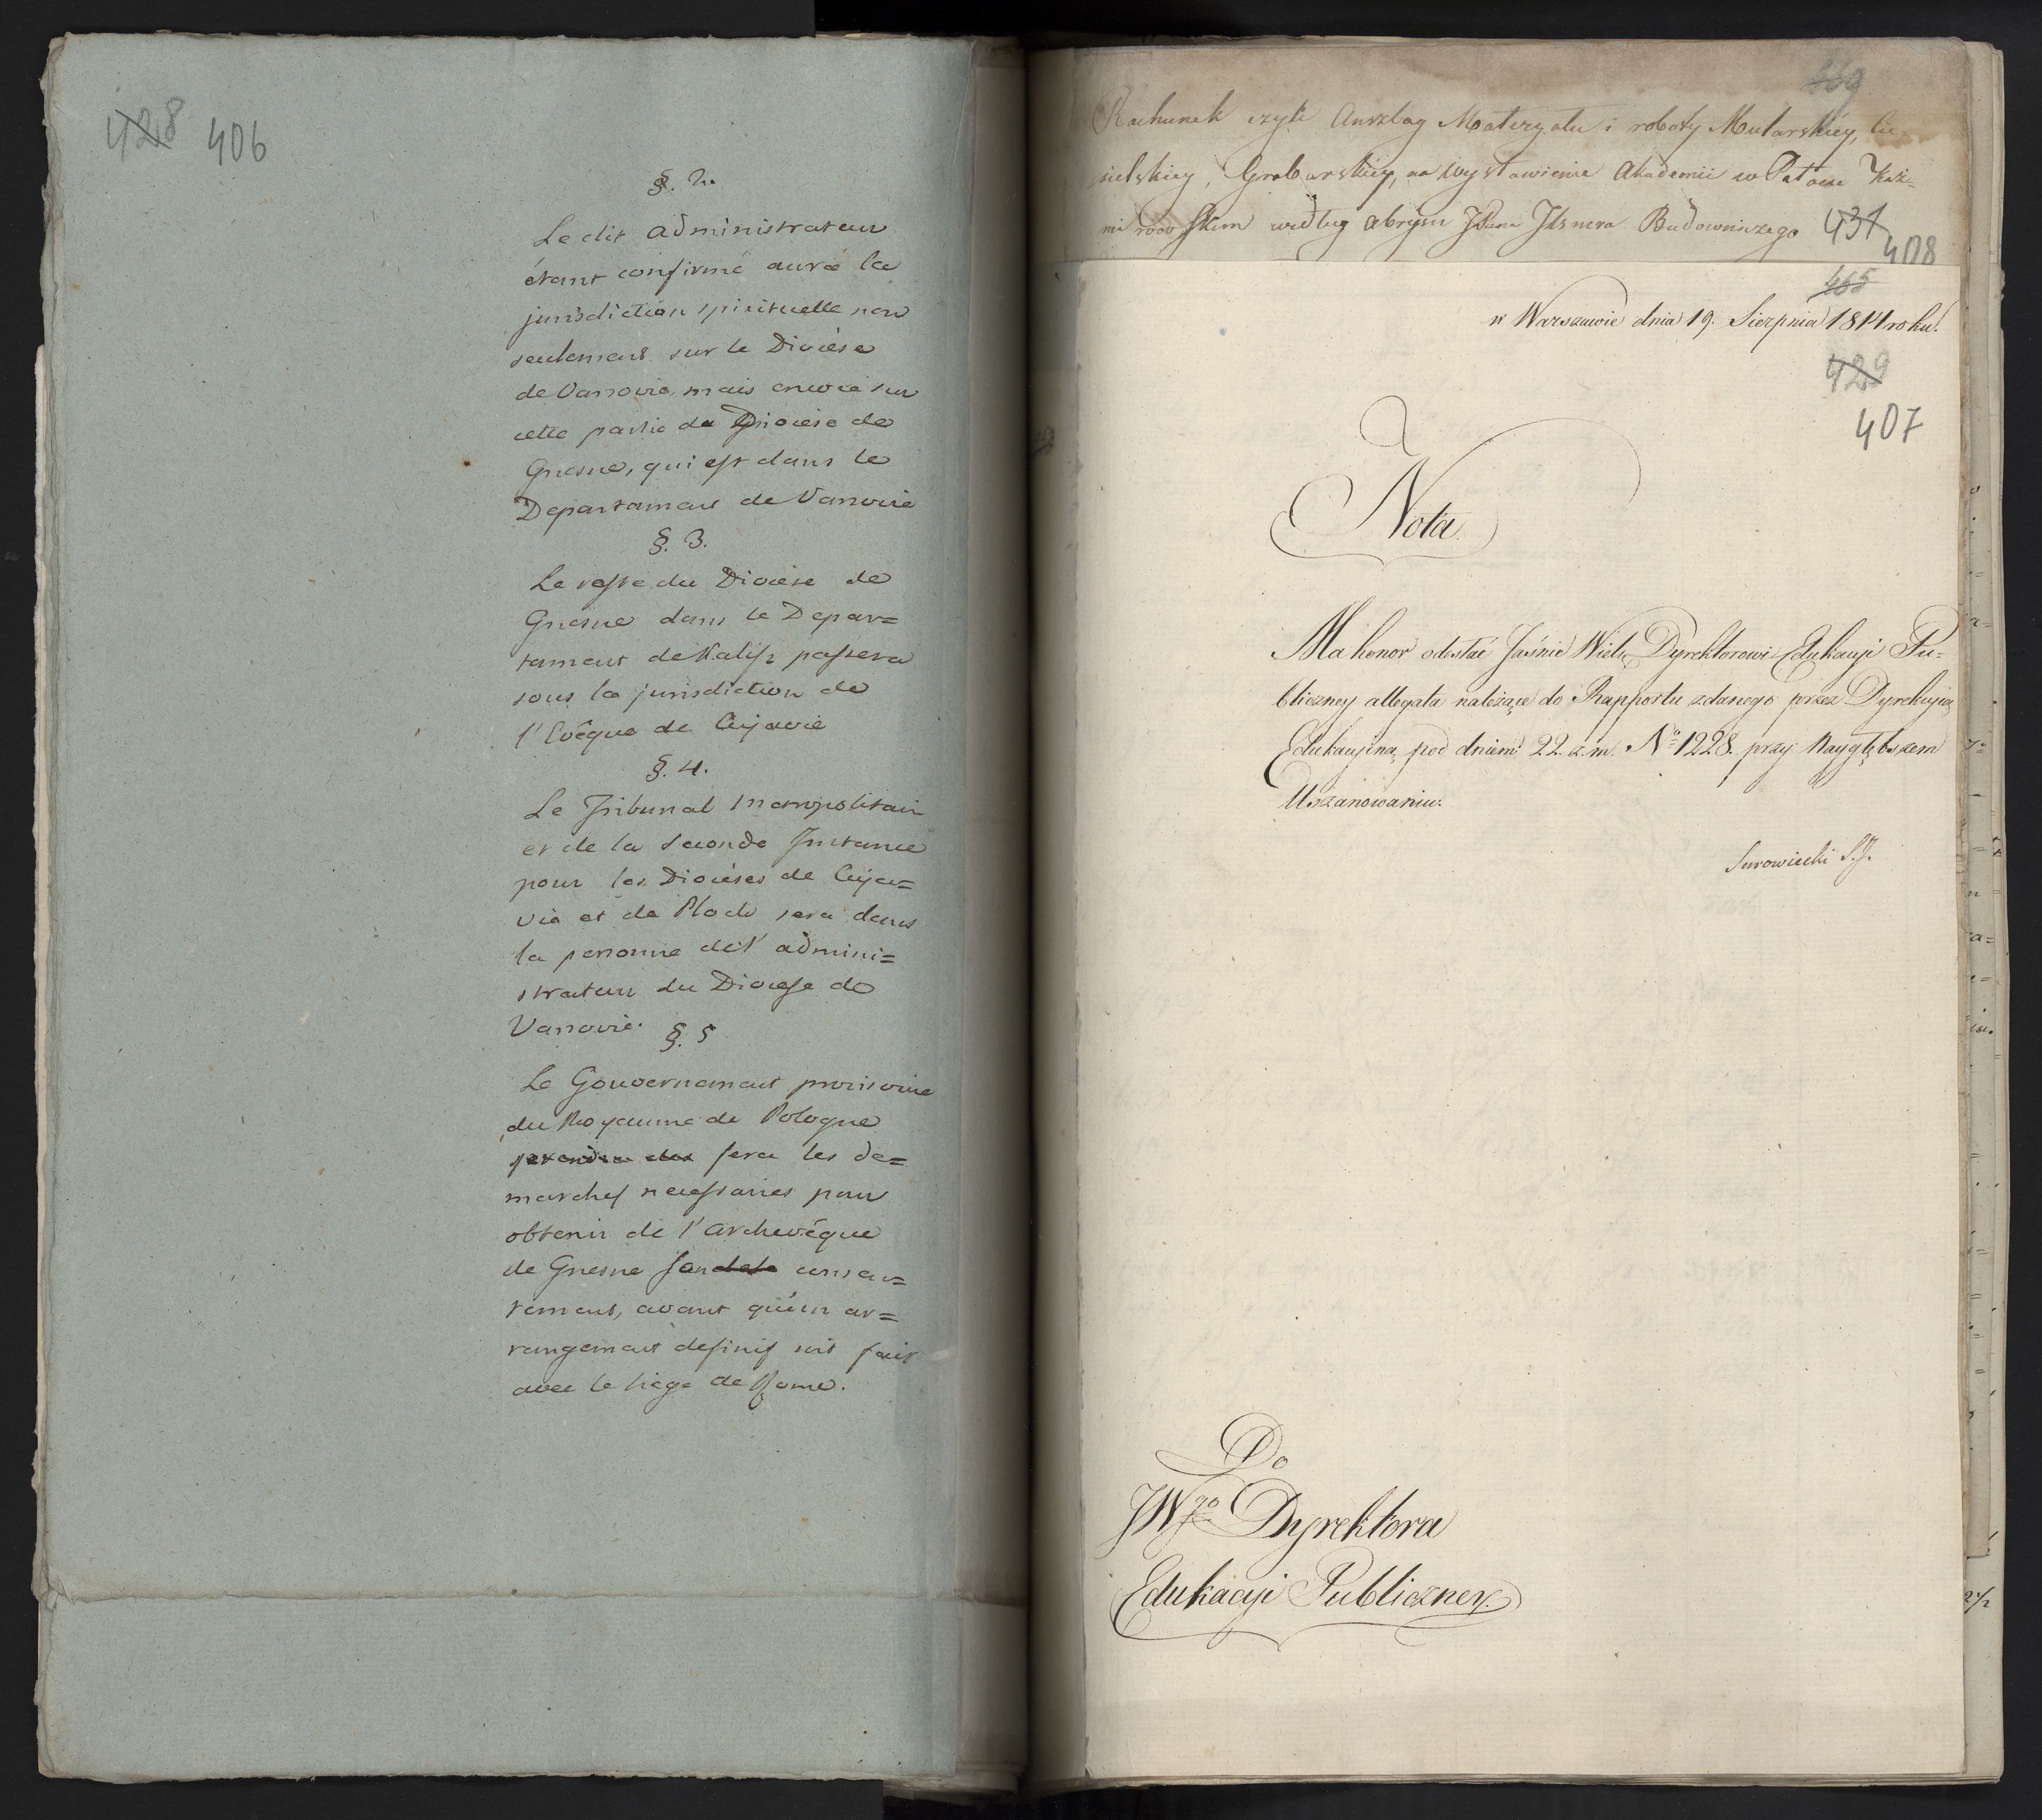 428 406
§. 2.
Le dit administrateur
étant confirmé aura la
jurisdiction spirituelle non
seulement sur le Diocèse
de Varsovie mais encore sur
cette partie du Diocèse de
Gnesne, qui est dans le
Departament de Varsovie
§. 3.
Le reste du Diocèse de
Gnesne dans le Depar=
tament de Kalisz passera
sous la jurisdiction de
l'Evêque de Cujavie
§. 4.
Le Tribunal metropolitain
et de la seconde Instance
pour les Diocèses de Cuja=
vie et de Plock sera dans
la personne de l'admini=
strateur du Diocese de
Varsovie.
§. 5
Le Gouvernement provisoire
du Royaume de Pologne
prendra des fera les de=
marches necessaires pour
obtenir de l'archevêque
de Gnesne son consen=
tement, avant qu'un ar=
rangement definif soit fait
avec le siège de Rome.
Rachunek czyli Anszlag Materyału i roboty Mularskiey, Cie=
sielskiey, Grabarskiey, na wystawienie Akademii w Pałacu Kaź=
mirowskim według abrysu JPana Budowniczego
431
408
465
w Warszawie dnia 19. Sierpnia 1814 roku.
429
407
Nota.
Ma honor odesłać Jaśnie Wielu Dyrektorowi Edukacyi Pu=
bliczney allegata należące do Rapportu zdanego przez Dyrekcyią
Edukacyina pod dniem 22. z. m. No 1228. przy Naygłębszem
Uszanowaniu.
Surowiecki S.J.
Do
JWgo Dyrektora
Edukacyi Publiczney.